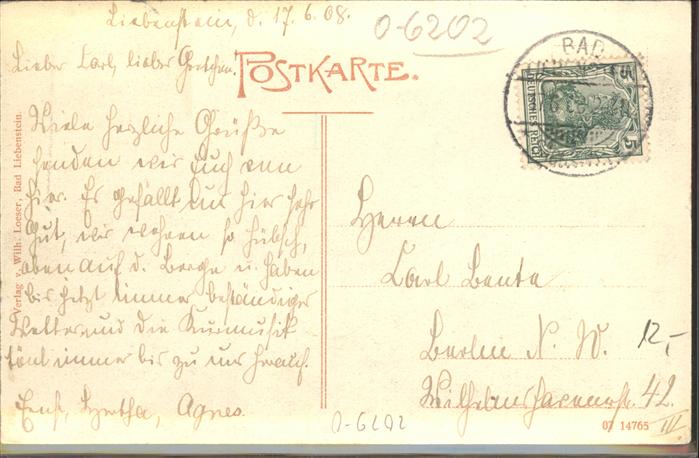 Liebenstein, d. 17.6.08.
0-6202
Lieber Carl, liebes Gretchen.
POSTKARTE.
BAD
5
DEUTSCHES REICH
5
Viele herzliche Grüße
senden wir Euch von
hier. Es gefällt uns hier sehr
gut, wir wohnen so hübsch,
oben auf d. Berge u. haben
bis jetzt immer beständiges
Wetter und die Kurmusik
tönt immer bis zu uns herauf.
Ernst, Hertha, Agnes.
Verlag v. Wilh. Loeser, Bad Liebenstein.
Herrn
Carl Bente
Berlin N. W.
Wilhelmshavenerstr. 42.
III
12,-
0-6202
07 14765